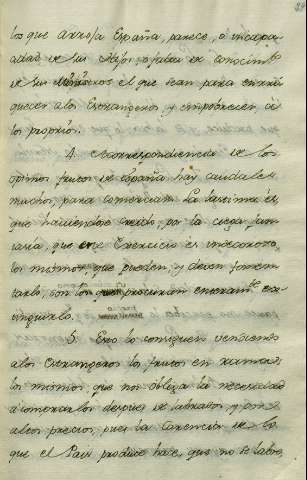 los que arroja España, parece, ò incapa-
cidad en sus Hijos, o falta de conocim.to
en sus Ministros el que sean para enrri-
quecer alos Extrangeros, y empobrecer à
los propios.
4. A correspondencia de los
opimos frutos de españa hay caudales
muchos, para comerciar. La lastima es,
que haviendose creido, por la ciega fan-
tasia, que este Exercicio es indecoroso,
los mismos, que pueden, y deven fomen-
tarlo, son los que procuran enteram.te ex-
tinguirlo.
5. Esto lo consiguen vendiendo
alos Extrangeros los frutos en rama
los mismos que nos obliga la necesidad
a comprarlos despues de labrados, y
altos precios, pues la carencia de lo
que el Pais produce hace, que no se labre,